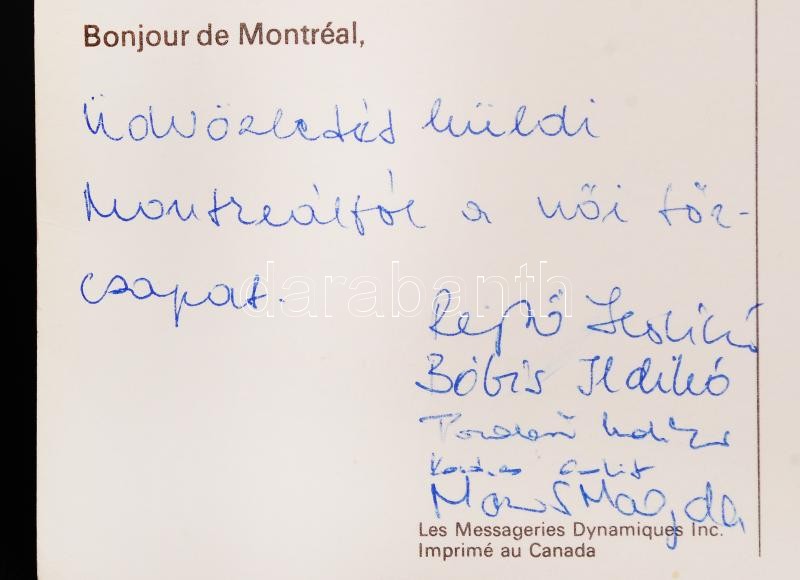 Bonjour de Montréal,
Üdvözletét küldi
Montreáltól a női tőr-
csapat.
darabanth
Rejtő Ildikó
Bóbis Ildikó
Maros Magda
Les Messageries Dynamiques Inc.
Imprimé au Canada